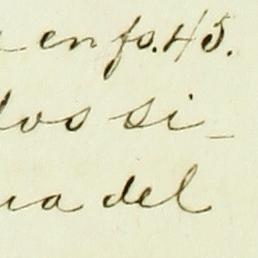 en fs. 45.
los si-
ua del